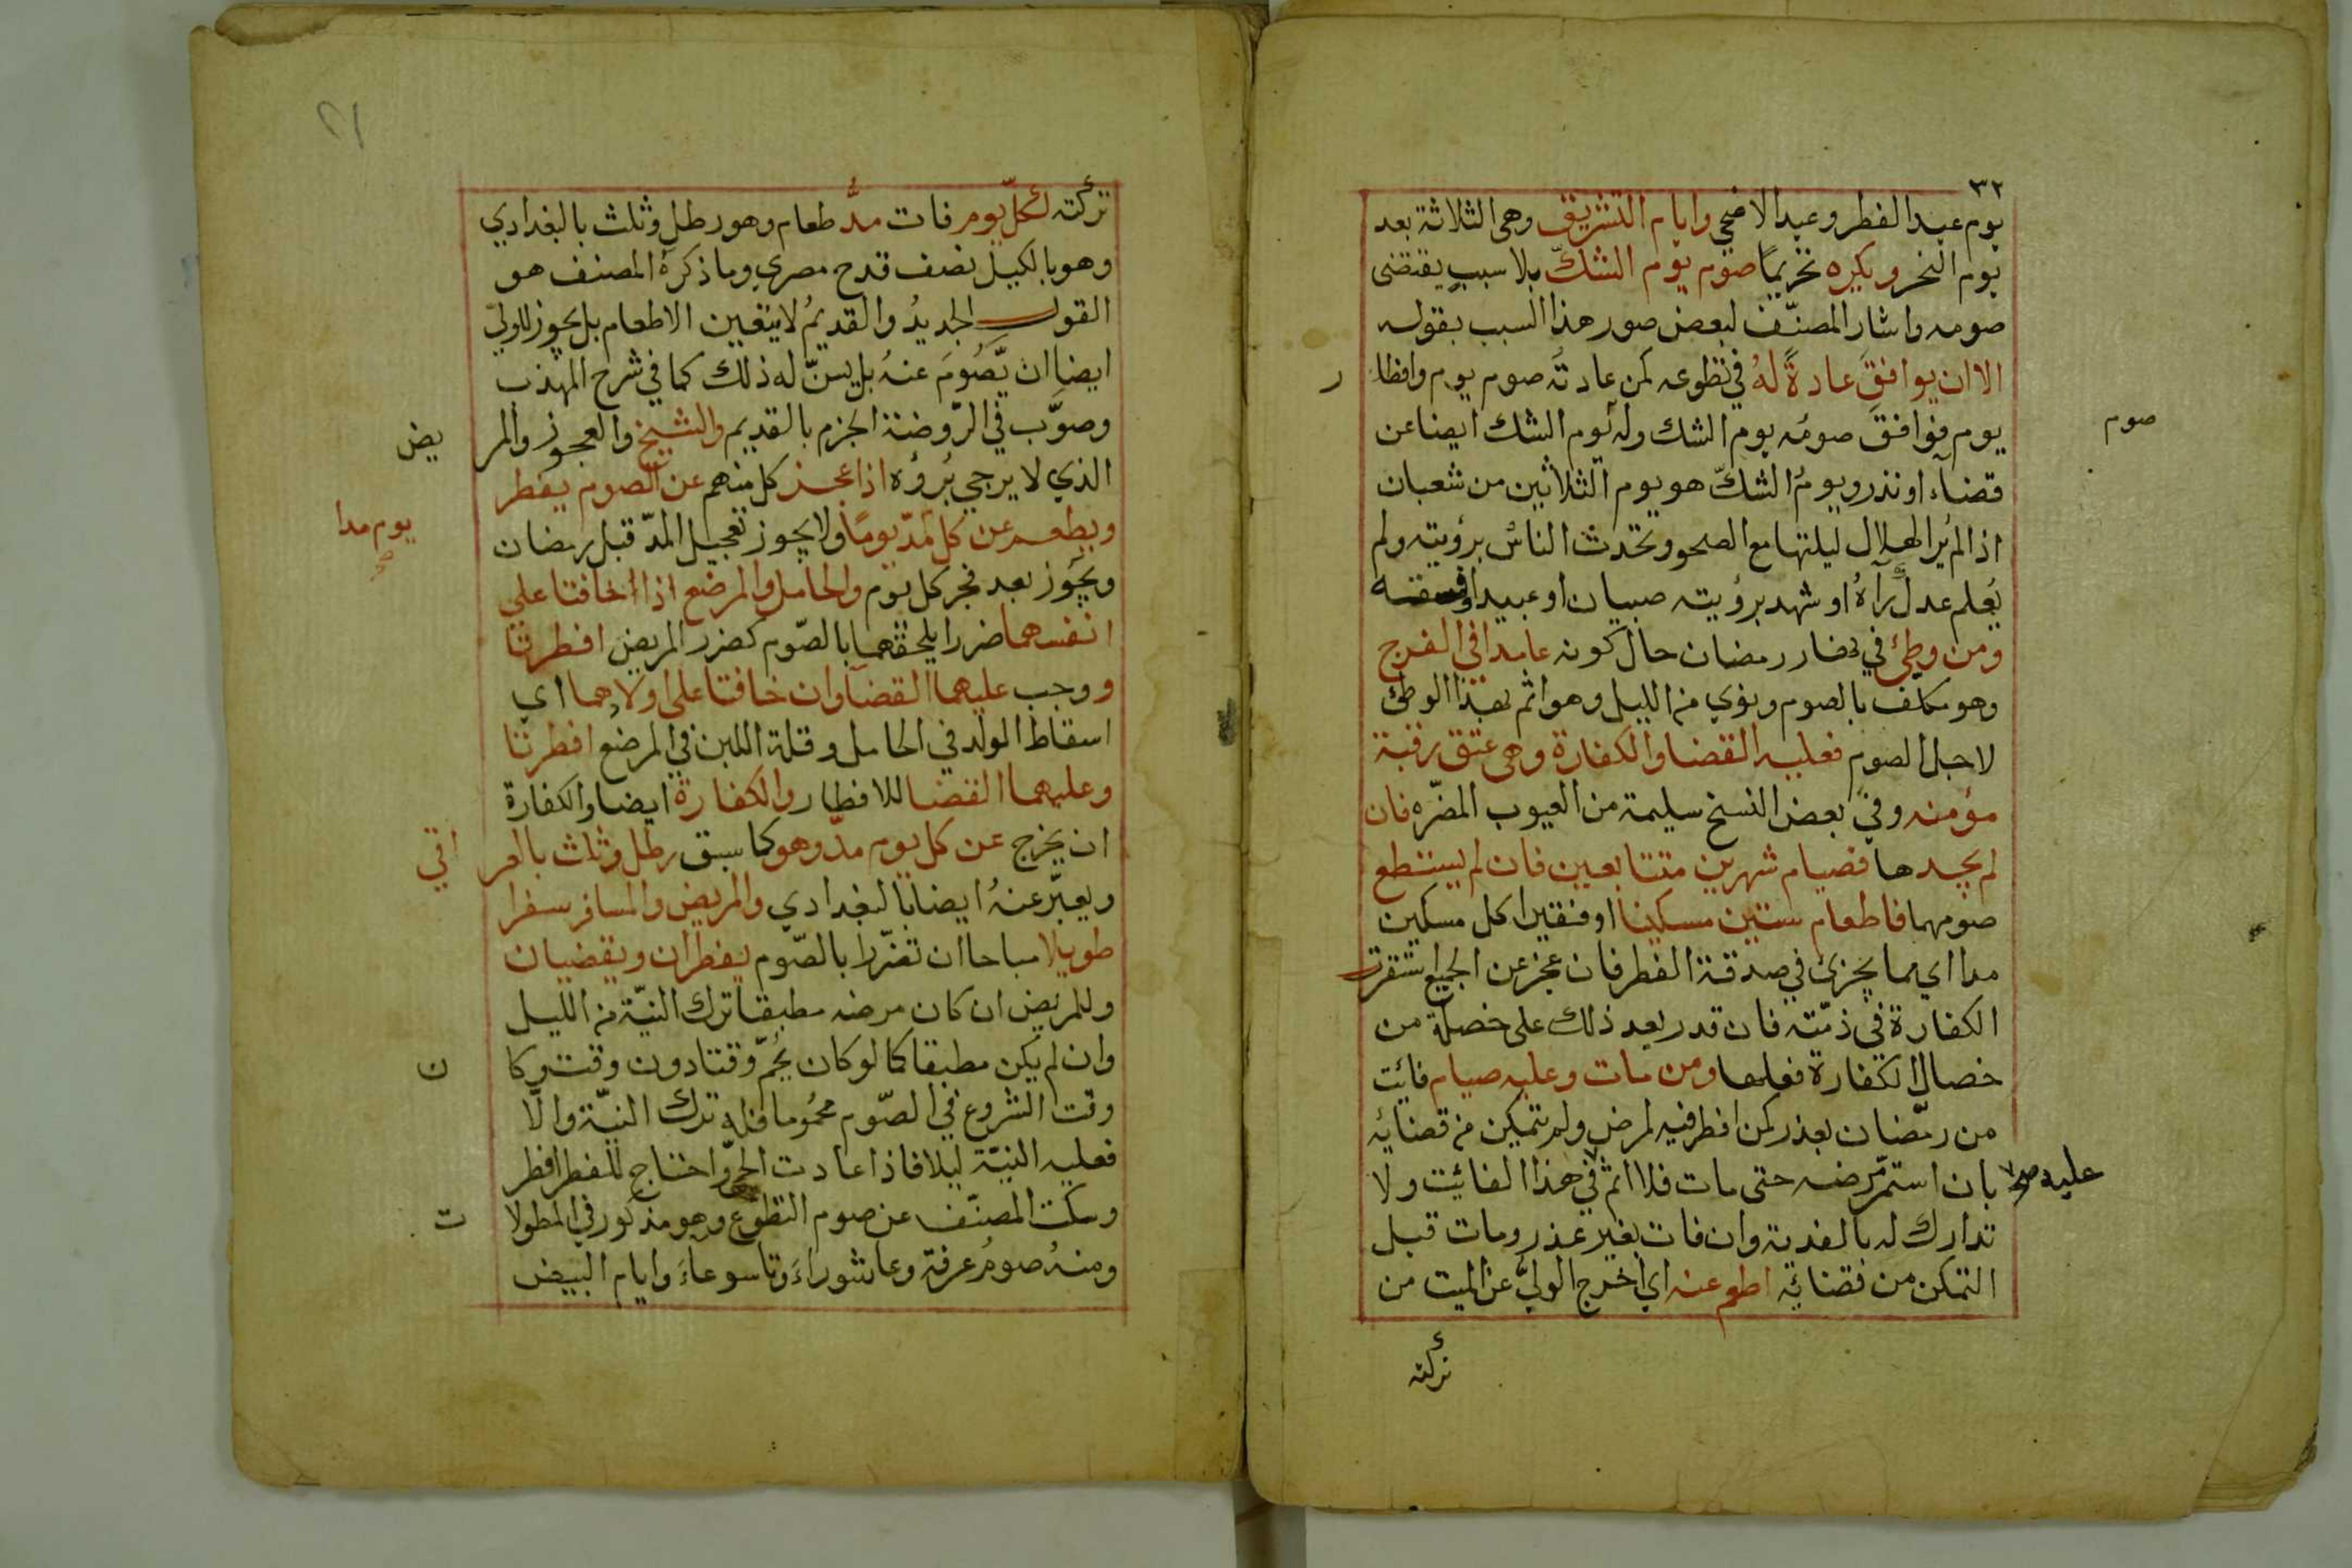 ٣٢
يوم عيد الفطر وعيد الاضحي وايام التشريق وهى الثلاثة بعد
يوم النحر ويكره تحريمًا صوم يوم الشكّ بلا سببٍ يقتضى
صومه واشار المصنّف لبعض صور هذا السبب بقوله
الا ان يوافقَ عادةً لهُ في تطوعه كمن عادتُه صوم يوم وافطا ر
يوم فوافقَ صومُه يوم الشك وله صوم يوم الشك ايضا عن
صوم
قضاء او نذر ويومُ الشكّ هو يوم الثلاثين من شعبان
اذا لم يُر الهلال ليلتها مع الصحو وتحدث الناسُ برؤيته ولم
يُعلم عدلٌ رآهُ او شهد برؤيته صبيان او عبيد او فسقه
ومن وطئ في نهار رمضان حال كونه عامدا في الفرج
وهو مكلف بالصوم ونوي من الليل وهو اثم بهذا الوطئ
لاجل الصوم فعليه القضا والكفارة وهى عتق رقبة
مؤمنه وفي بعض النسخ سليمة من العيوب المضّره فان
لم يجدها فصيام شهرين متتابعين فان لم يستطع
صومهما فاطعام ستين مسكينا او فقيرا كل مسكين
مدا اي مما يجزئ في صدقة الفطر فان عجز عن الجميع استقرت
الكفارة في ذمّته فان قدر بعد ذلك على خصلة من
خصال الكفارة فعلها ومن مات وعليه صيام فائت
من رمضان بعذر كمن افطر فيه لمرض ولم يتمكن من قضائه
بان استمرّ مرضه حتى مات فلا اثم في هذا الفائت ولا
عليه صح
تدارك له بالفدية وان فات بغير عذر ومات قبل
التمكن من قضائه اطعم عنه اي اخرج الوليّ عن الميت من
تركته
تركته لكلّ يوم فات مدُّ طعام وهو رطل وثلث بالبغدادي
وهو بالكيل نصف قدح مصري وما ذكرهُ المصنف هو
القول الجديدُ والقديمُ لا يتعين الاطعام بل يجوز للولي
ايضا ان يَّصُومَ عنهُ بل يسنّ له ذلك كما في شرح المهذب
وصوَّب في الرّوضة الجزم بالقديم والشيخ والعجوز والمر يض
الذي لا يرجي بُرؤُه اذا عجز كل منهم عن الصوم يفطر
ويطعم عن كل مدّ يومًا ولا يجوز تعجيل المدّ قبل رمضان
يوم مدا
صح
ويجُوز بعد فجر كل يوم والحامل والمرضع اذا خافتا على
انفسهما ضررا يلحقهما بالصّوم كضرر المريض افطرتا
ووجب عليهما القضا وان خافتا على اولادهما اي
اسقاط الولد في الحامل وقلة اللبن في المرضع افطرتا
وعليهما القضا للافطار والكفارة ايضا والكفارة
ان يخرج عن كل يوم مدّ وهو كما سبق رطل وثلث بالعر اقي
ويعبّر عنهُ ايضا بالبغدادي والمريض والمسافر سفرا
طويلا مباحا ان تضّررا بالصّوم يفطران ويقضيان
وللمريض ان كان مرضه مطبقا ترك النيّة من الليل
وان لم يكن مطبقا كما لو كان يُحمّ وقتا دون وقت وكا ن
وقت الشروع في الصّوم محمُوما فله ترك النيّة والّا
فعليه النيّة ليلا فاذا عادت الحمّي واحتاج للفطر افطر
وسكت المصنّف عن صوم التطوّع وهو مذكور في المطولا ت
ومنهُ صومُ عرفة وعاشوراءَ وتاسوعاءَ وايام البيض